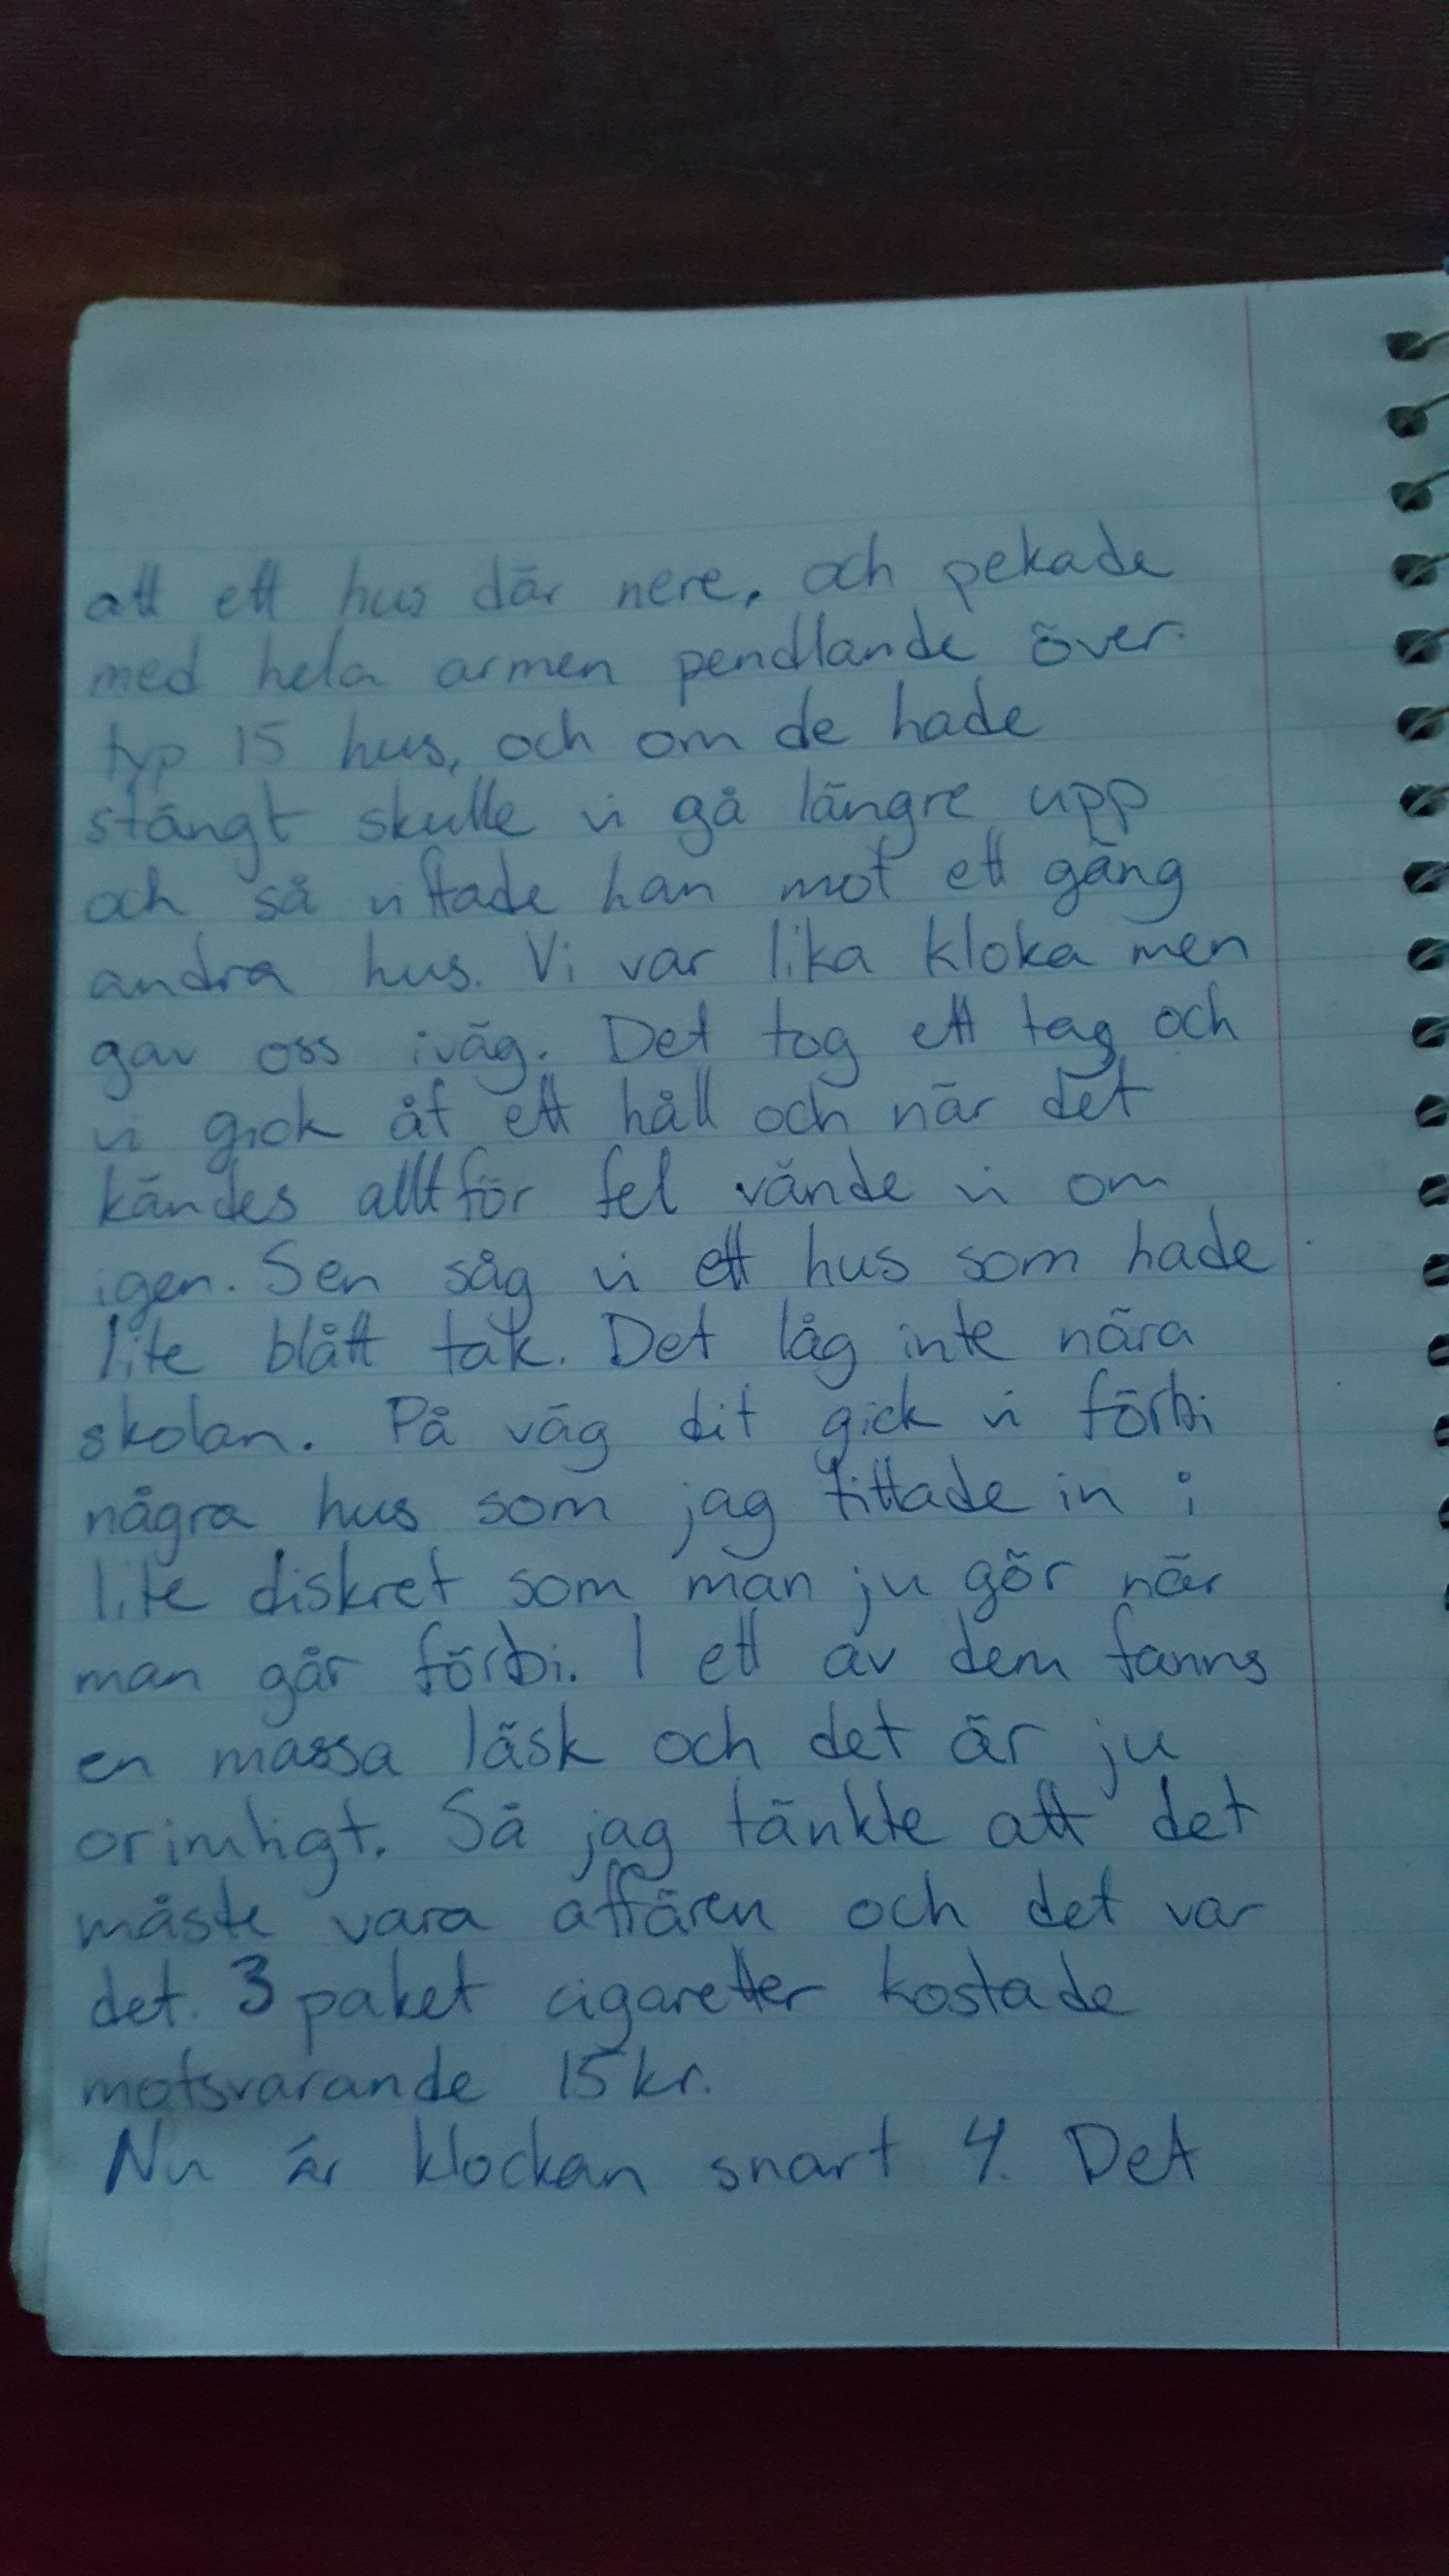 att ett hus där nere, och pekade
med hela armen pendlande över
typ 15 hus, och om de hade
stängt skulle vi gå längre upp
och så viftade han mot ett gäng
andra hus. Vi var lika kloka men
gav oss iväg. Det tog ett tag och
vi gick åt ett håll och när det
kändes alltför fel vände vi om
igen. Sen såg vi ett hus som hade
lite blått tak. Det låg inte nära
skolan. På väg dit gick vi förbi
några hus som jag tittade in i
lite diskret som man ju gör när
man går förbi. I ett av dem fanns
en massa läsk och det är ju
orimligt. Så jag tänkte att det
måste vara affären och det var
det. 3 paket cigaretter kostade
motsvarande 15 kr.
Nu är klockan snart 4. Det